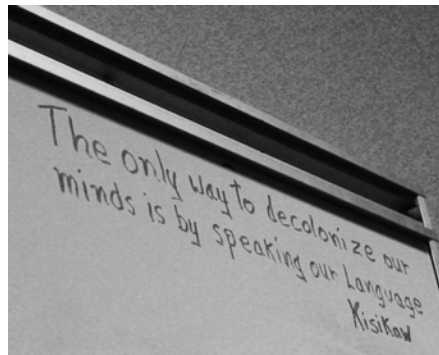 The only way to decolonize our
minds is by speaking our Language
Kisikaw